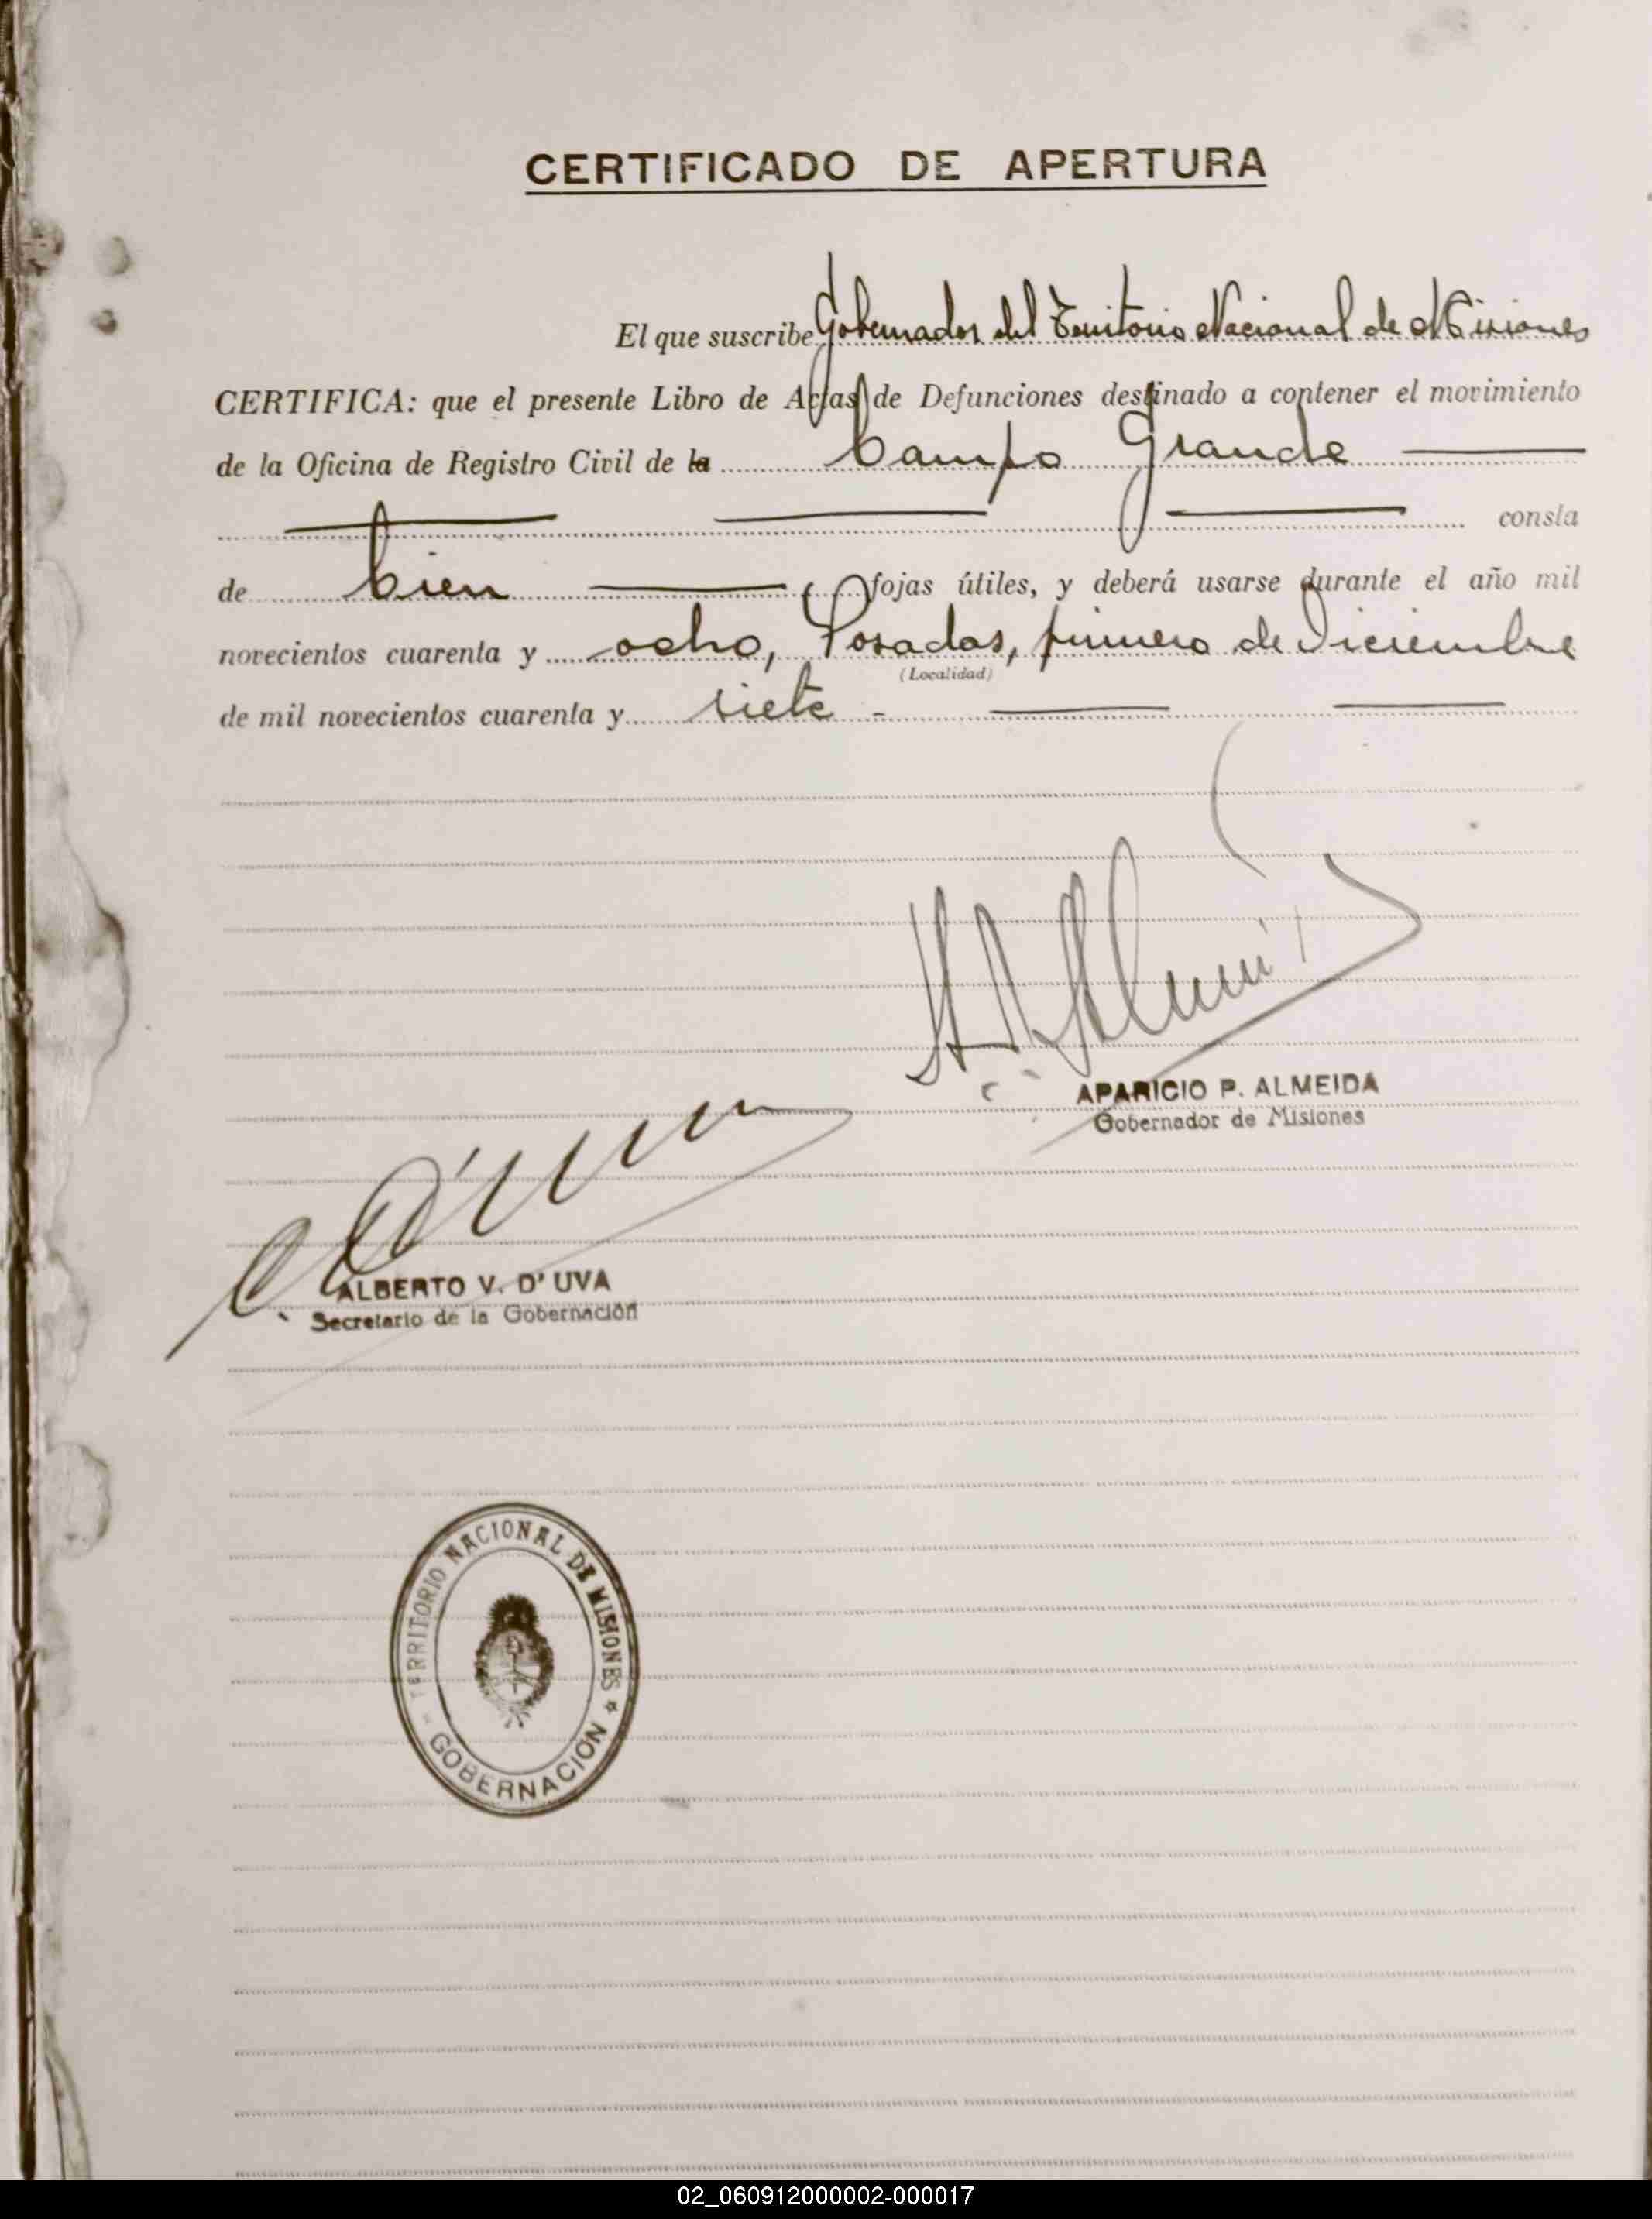 CERTIFICADO DE APERTURA
El que suscribe Gobernador del Territorio Nacional de Misiones
CERTIFICA: que el presente Libro de Actas de Defunciones destinado a contener el movimiento
de la Oficina de Registro Civil de la Campo Grande
consta
de cien fojas útiles, y deberá usarse durante el año mil
novecientos cuarenta y ocho, Posadas, primero de Diciembre
(Localidad)
de mil novecientos cuarenta y siete -
APARICIO P. ALMEIDA
Gobernador de Misiones
ALBERTO V. D' UVA
Secretario de la Gobernación
TERRITORIO NACIONAL DE MISIONES
GOBERNACIÓN
02_060912000002-000017